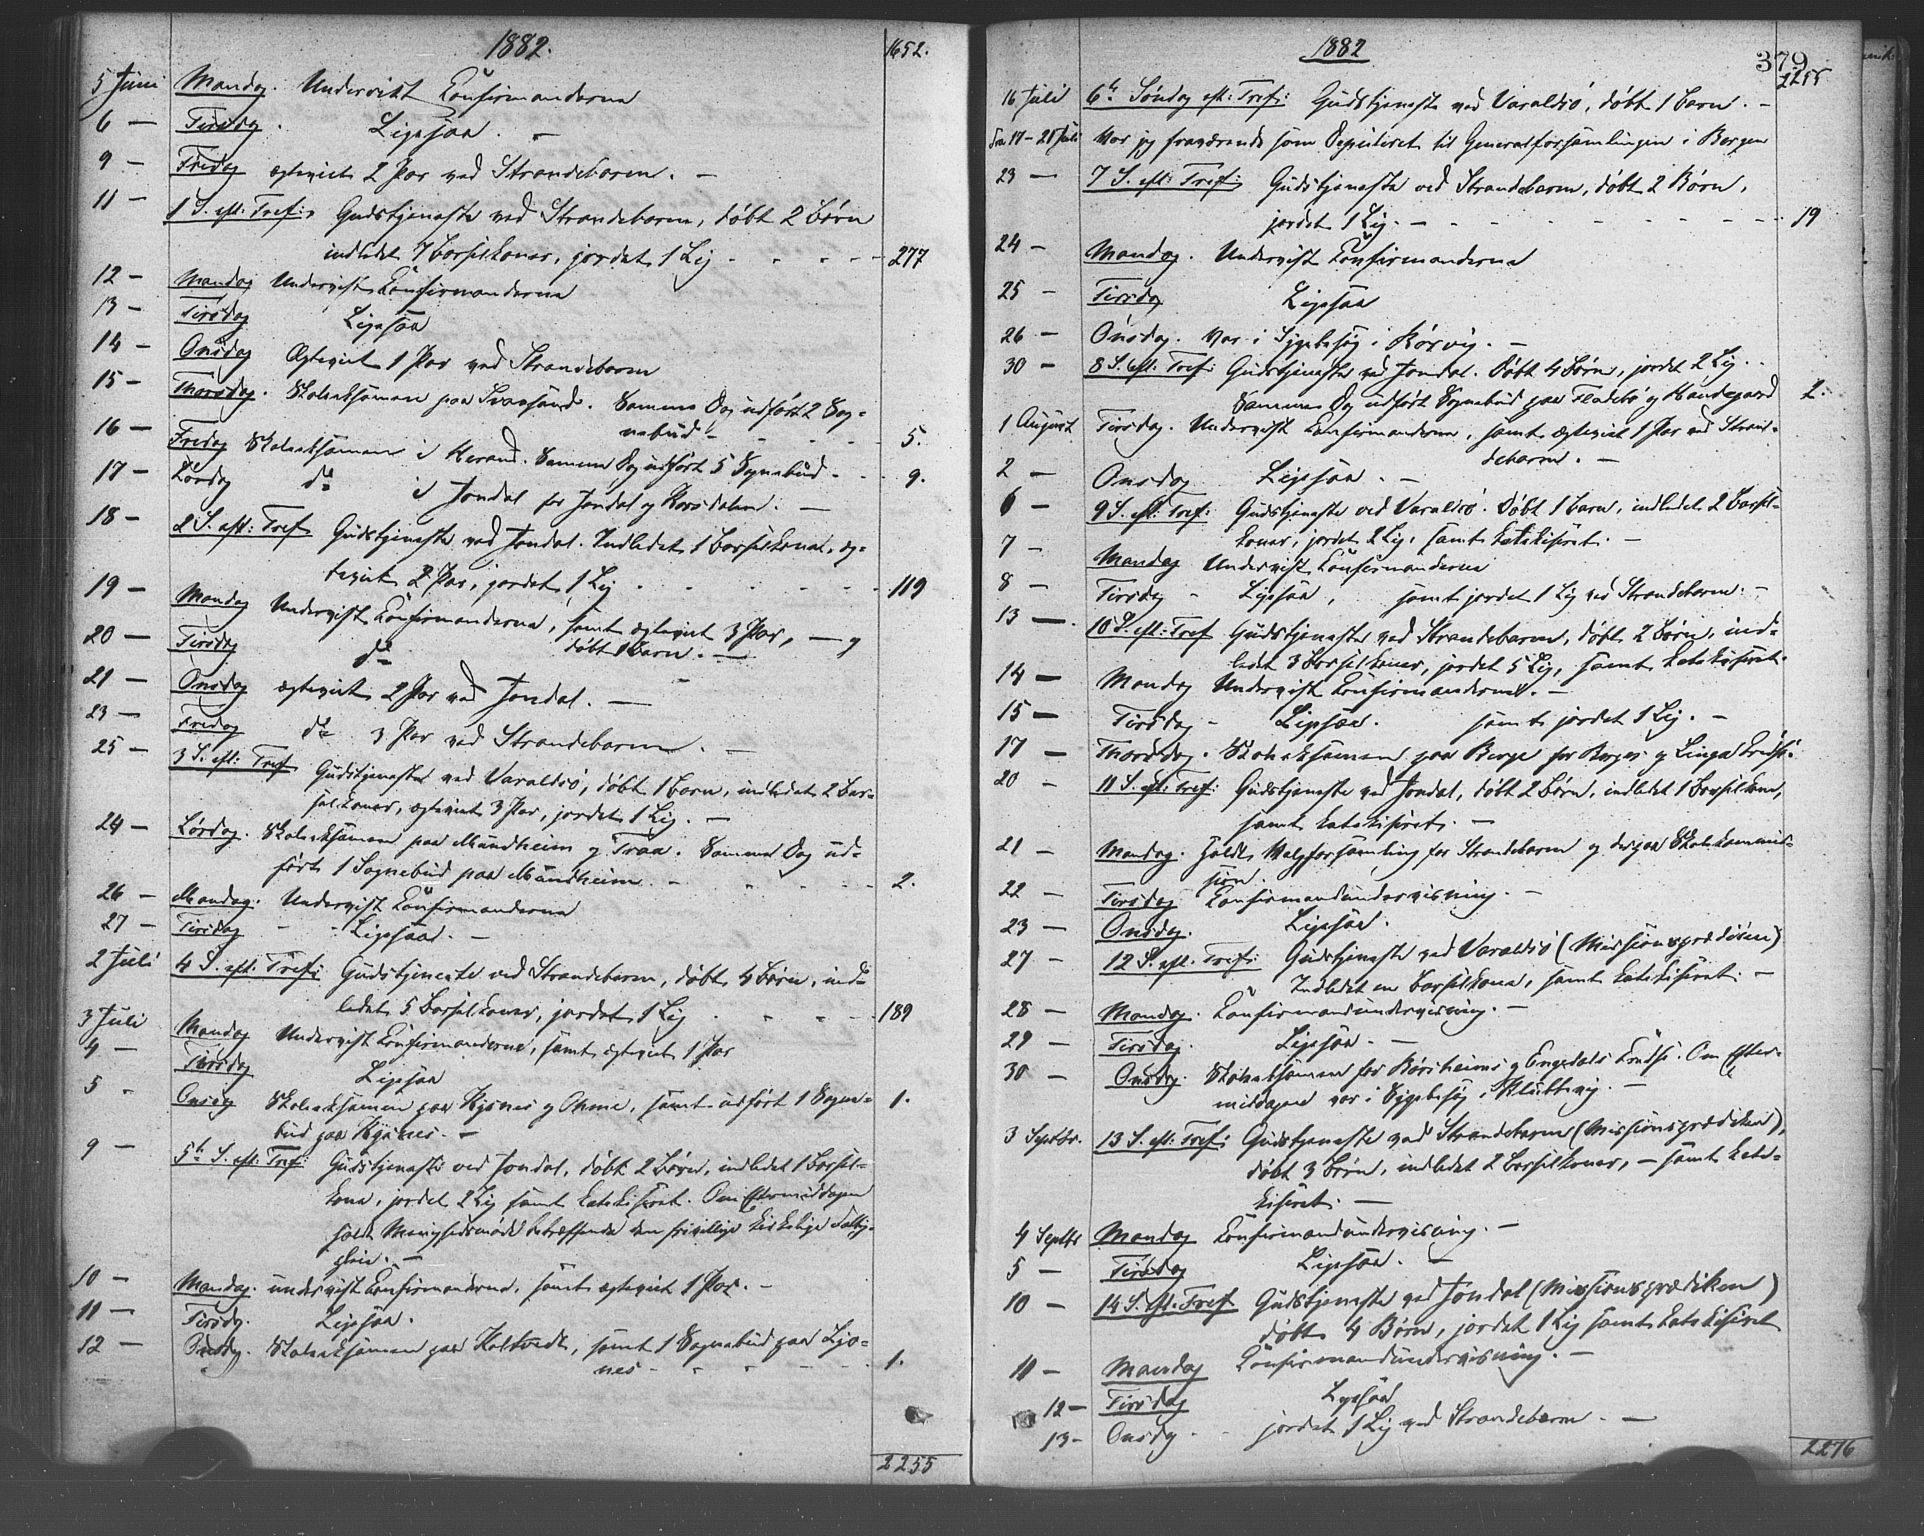 1882.
1652.
5 Juni Mandag. Undervist Konfirmanderne
6 — Tirsdag. Ligesaa. —
9 — Fredag ægteviet 2 Par ved Strandebarm. —
11 — 1 S. eft: Tref: Gudstjeneste ved Strandebarm, døbt 2 Børn
indledet 7 Barselkoner, jordet 1 Lig - - - - 277
12 — Mandag Undervist Konfirmanderne
13 — Tirsdag Ligesaa
14 — Onsdag Ægteviet 1 Par ved Strandebarm
15 — Thorsdag. Skoleeksamen paa Svaasand. Samme Dag udført 2 Sog-
nebud - - - - 5.
16 — Fredag Skoleeksamen i Herand. Samme Dag udført 5 Sognebud. - - 9.
17 — Lørdag do i Jondal for Jondal og Korsdalen. —
18 — 2 S. eft: Tref Gudstjeneste ved Jondal. Indledet 1 Barselkone, æg-
teviet 2 Par, jordet 1 Lig - - - - 119
19 — Mandag Undervist Konfirmanderne, samt ægteviet 3 Par, — og
døbt 1 Barn. —
20 — Tirsdag do
21 — Onsdag ægteviet 2 Par ved Jondal. —
23 — Fredag do 3 Par ved Strandebarm. —
25 — 3 S. eft: Tref Gudstjeneste ved Varaldsø, døbt 1 Barn, indledet 2 Bar-
selkoner, ægteviet 3 Par, jordet 1 Lig. —
24 — Lørdag. Skoleeksamen paa Mundheim og Traa. Samme Dag ud-
ført 1 Sognebud paa Mundheim. — - - - 2.
26 — Mandag. Undervist Konfirmanderne
27 — Tirsdag - - Ligesaa. —
2 Juli 4 S. eft: Tref: Gudstjeneste ved Strandebarm, døbt 4 Børn, ind-
ledet 5 Barselkoner, jordet 1 Lig - - - - 189
3 Juli Mandag Undervist Konfirmanderne, samt ægteviet 1 Par
4 — Tirsdag Ligesaa
5 - Onsdag Skoleeksamen paa Kysnes og Ohme, samt udført 1 Sogne- 1.
bud paa Kysnes. —
9 — 5te S. eft: Tref: Gudstjeneste ved Jondal, døbt 2 Børn, indledet 1 Barsel-
kone, jordet 2 Lig samt katekiseret. Om Eftermiddagen
holdt Menighedsmøde betræffende den frivillige kirkelige Fattig-
pleie. —
10 — Mandag. undervist Konfirmanderne, samt ægteviet 1 Par. —
11 — Tirsdag. Ligesaa.
12 — Onsdag. Skoleeksamen paa Holtvedt, samt 1 Sognebud paa Ljo-
nes - - - - 1.
2255
1882
379
2255
16 Juli 6te Søndag eft: Tref: Gudstjeneste ved Varaldsø, døbt 1 Barn. —
Fra 17 - 21 Juli var jeg fraværende som Deputeret til Generalforsamlingen i Bergen
23 — 7 S. eft: Tref: Gudstjeneste ved Strandebarm, døbt 2 Børn,
jordet 1 Lig. — - - - - 19
24 — Mandag. Undervist Konfirmanderne
25 — Tirsdag Ligesaa
26 — Onsdag. Var i Sygebesøg i Kørvig. —
30 — 8 S. eft: Tref: Gudstjeneste ved Jondal. Døbt 4 Børn, jordet 2 Lig. -
Samme Dag udført Sognebud paa Fladebø og Haandegaard 2.
1 August Tirsdag. Undervist Konfirmanderne, samt ægteviet 1 Par ved Strand-
debarm. —
2 — Onsdag Ligesaa. —
6 — 9 S. eft: Tref: Gudstjeneste ved Varaldsø. Døbt 1 Barn, indledet 2 Barsel-
koner, jordet 2 Lig, samt katekiseret. —
7 — Mandag Undervist Konfirmanderne
8 — Tirsdag - Ligesaa, samt jordet 1 Lig ved Strandebarm. —
13 — 10 S. eft: Tref Gudstjeneste ved Strandebarm, døbt 2 Børn, ind-
ledet 3 Barselkoner, jordet 5 Lig, samt katekiseret.
14 — Mandag Undervist Konfirmanderne. —
15 — Tirsdag - Ligesaa. samt jordet 1 Lig. —
17 — Thorsdag. Skoleeksamen paa Berge for Berges og Linga Kreds.
20 — 11 S. eft: Tref: Gudstjeneste ved Jondal, døbt 2 Børn, indledet 1 Barselkone,
samt katekiseret. —
21 — Mandag. Holdt Valgforsamling for Strandebarm og desuden Skolekommis-
sion.
22 — Tirsdag Konfirmandundervisning. —
23 — Onsdag. Ligesaa.
27 — 12 S. eft. Tref: Gudstjeneste ved Varaldsø (Missionsprædiken)
Indledet en Barselkone, samt katekiseret. —
28 — Mandag. Konfirmandundervisning. —
29 — Tirsdag. Ligesaa. —
30 — Onsdag. Skoleeksamen for Børsheims og Engedals Kreds. Om Efter-
middagen var i Sygebesøg i Klubbevig. —
3 Septbr. 13 S. eft: Tref: Gudstjeneste ved Strandebarm (Missionsprædiken),
døbt 3 Børn, indledet 2 Barselkoner, — samt kate-
kiseret. —
4 Septbr Mandag Konfirmandundervisning. —
5 — Tirsdag Ligesaa. —
10 — 14 S. eft. Tref Gudstjeneste ved Jondal (Missionsprædiken)
døbt 4 Børn, jordet 1 Lig samt katekiseret
11 — Mandag Konfirmandundervisning. —
12 — Tirsdag Ligesaa
13 - Onsdag - - jordet 1 Lig ved Strandebarm. —
2276